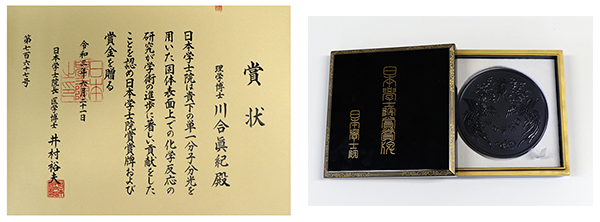 賞状
理学博士 川合眞紀殿
日本学士院は貴下の単一分子分光を
用いた、固体表面上での化学反応の
研究が学術の進歩に著しい貢献をした
ことを認め日本学士院賞賞牌および
賞金を贈る
日本学士院長 医学博士 井村裕夫
第七百六十七号
日本學士院賞賞牌
日本學士院